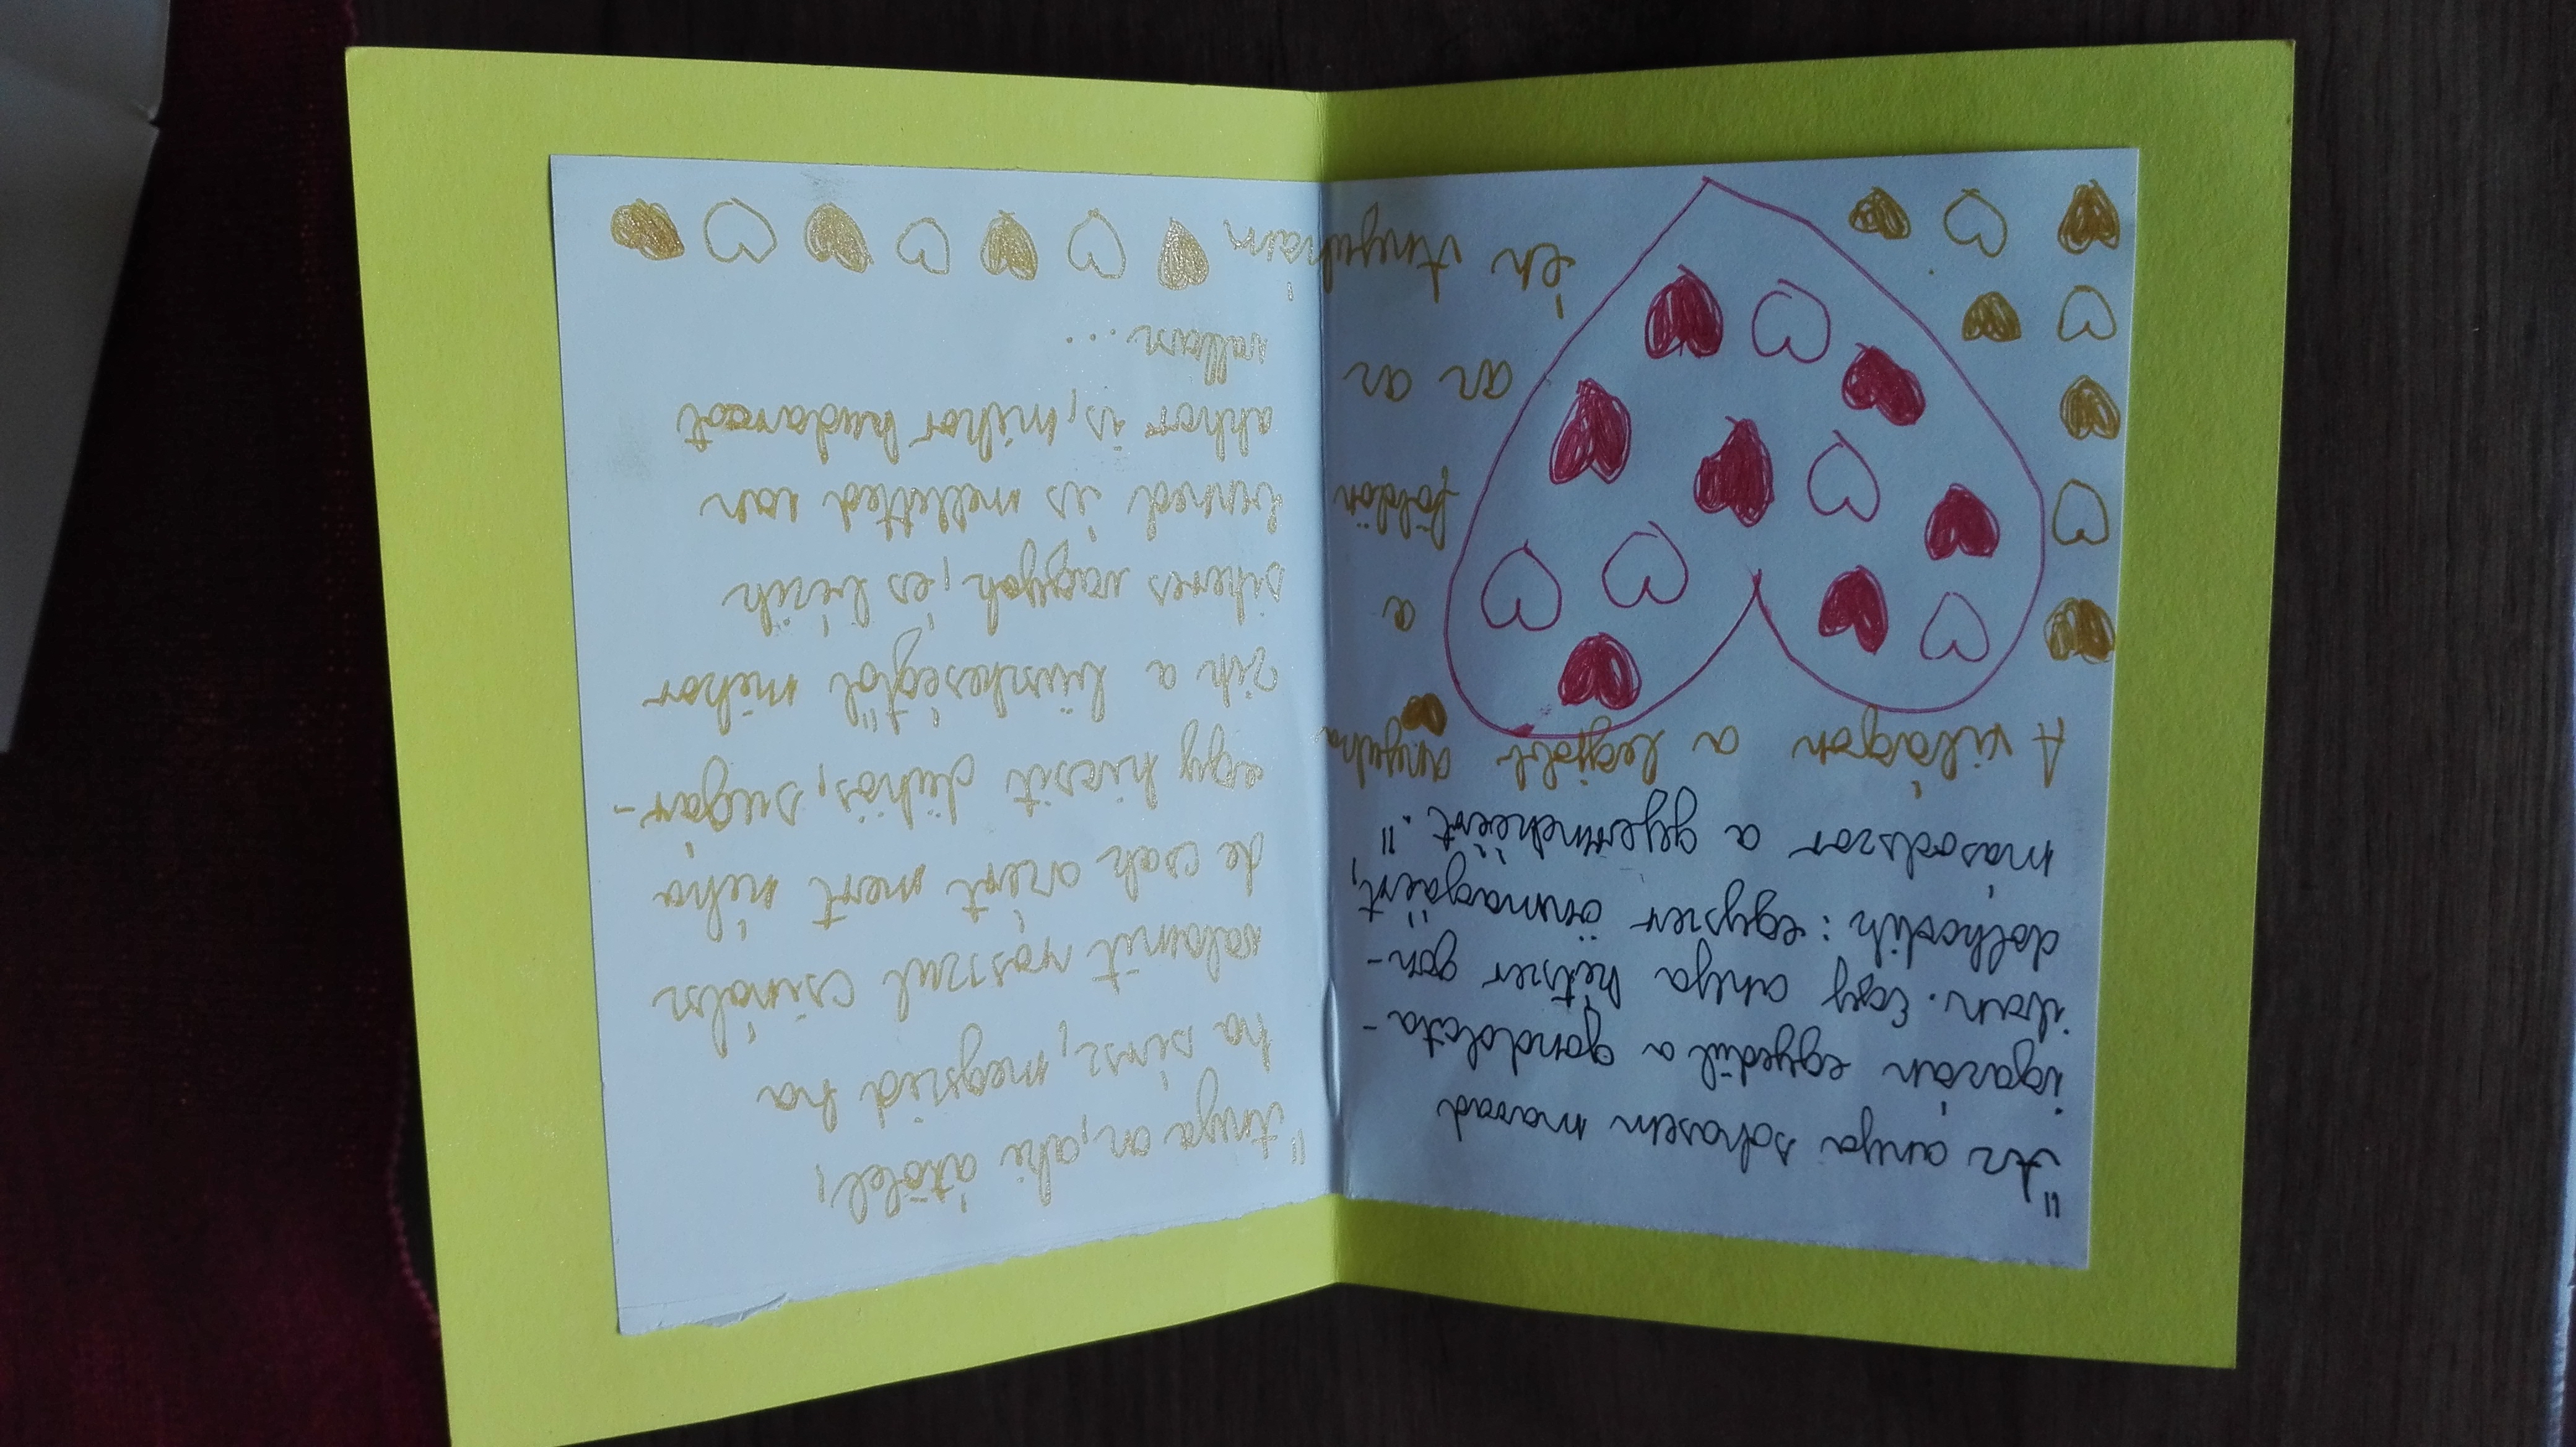 "Az anya sohasem marad
igazán egyedül a gondolata-
iban. Egy anya kétszer gon-
dolkodik: egyszer önmagáért,
másodszor a gyermekéért."
A világon a legjobb anyuka
a
földön
az az
én Anyukám
"Anya az, aki átölel,
ha sírsz, megszid ha
valamit rosszul csinálsz
de csak azért mert néha
egy kicsit dühös, sugár-
zik a büszkeségtől mikor
sikeres vagyok, és bízik
benned és melletted van
akkor is, mikor kudarcot
vallasz...